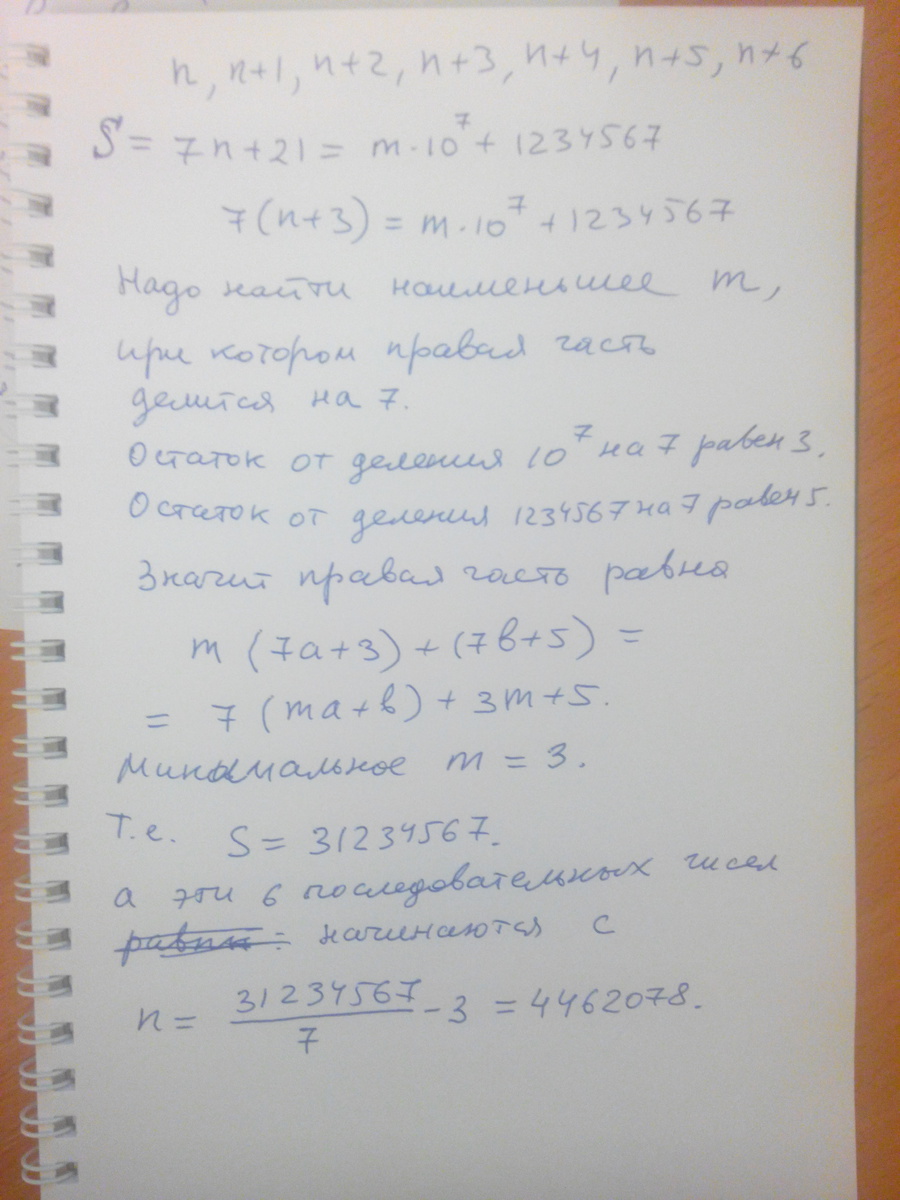 n, n+1, n+2, n+3, n+4, n+5, n+6
S = 7n+21 = m·10⁷ + 1234567
7(n+3) = m·10⁷ + 1234567
Надо найти наименьшее m,
при котором правая часть
делится на 7.
Остаток от деления 10⁷ на 7 равен 3.
Остаток от деления 1234567 на 7 равен 5.
Значит правая часть равна
m (7a+3) + (7b+5) =
= 7 (ma+b) + 3m+5.
Минимальное m = 3.
Т.е. S = 31234567.
а эти 6 последовательных чисел
равны: начинаются с
n = 31234567/7 - 3 = 4462078.